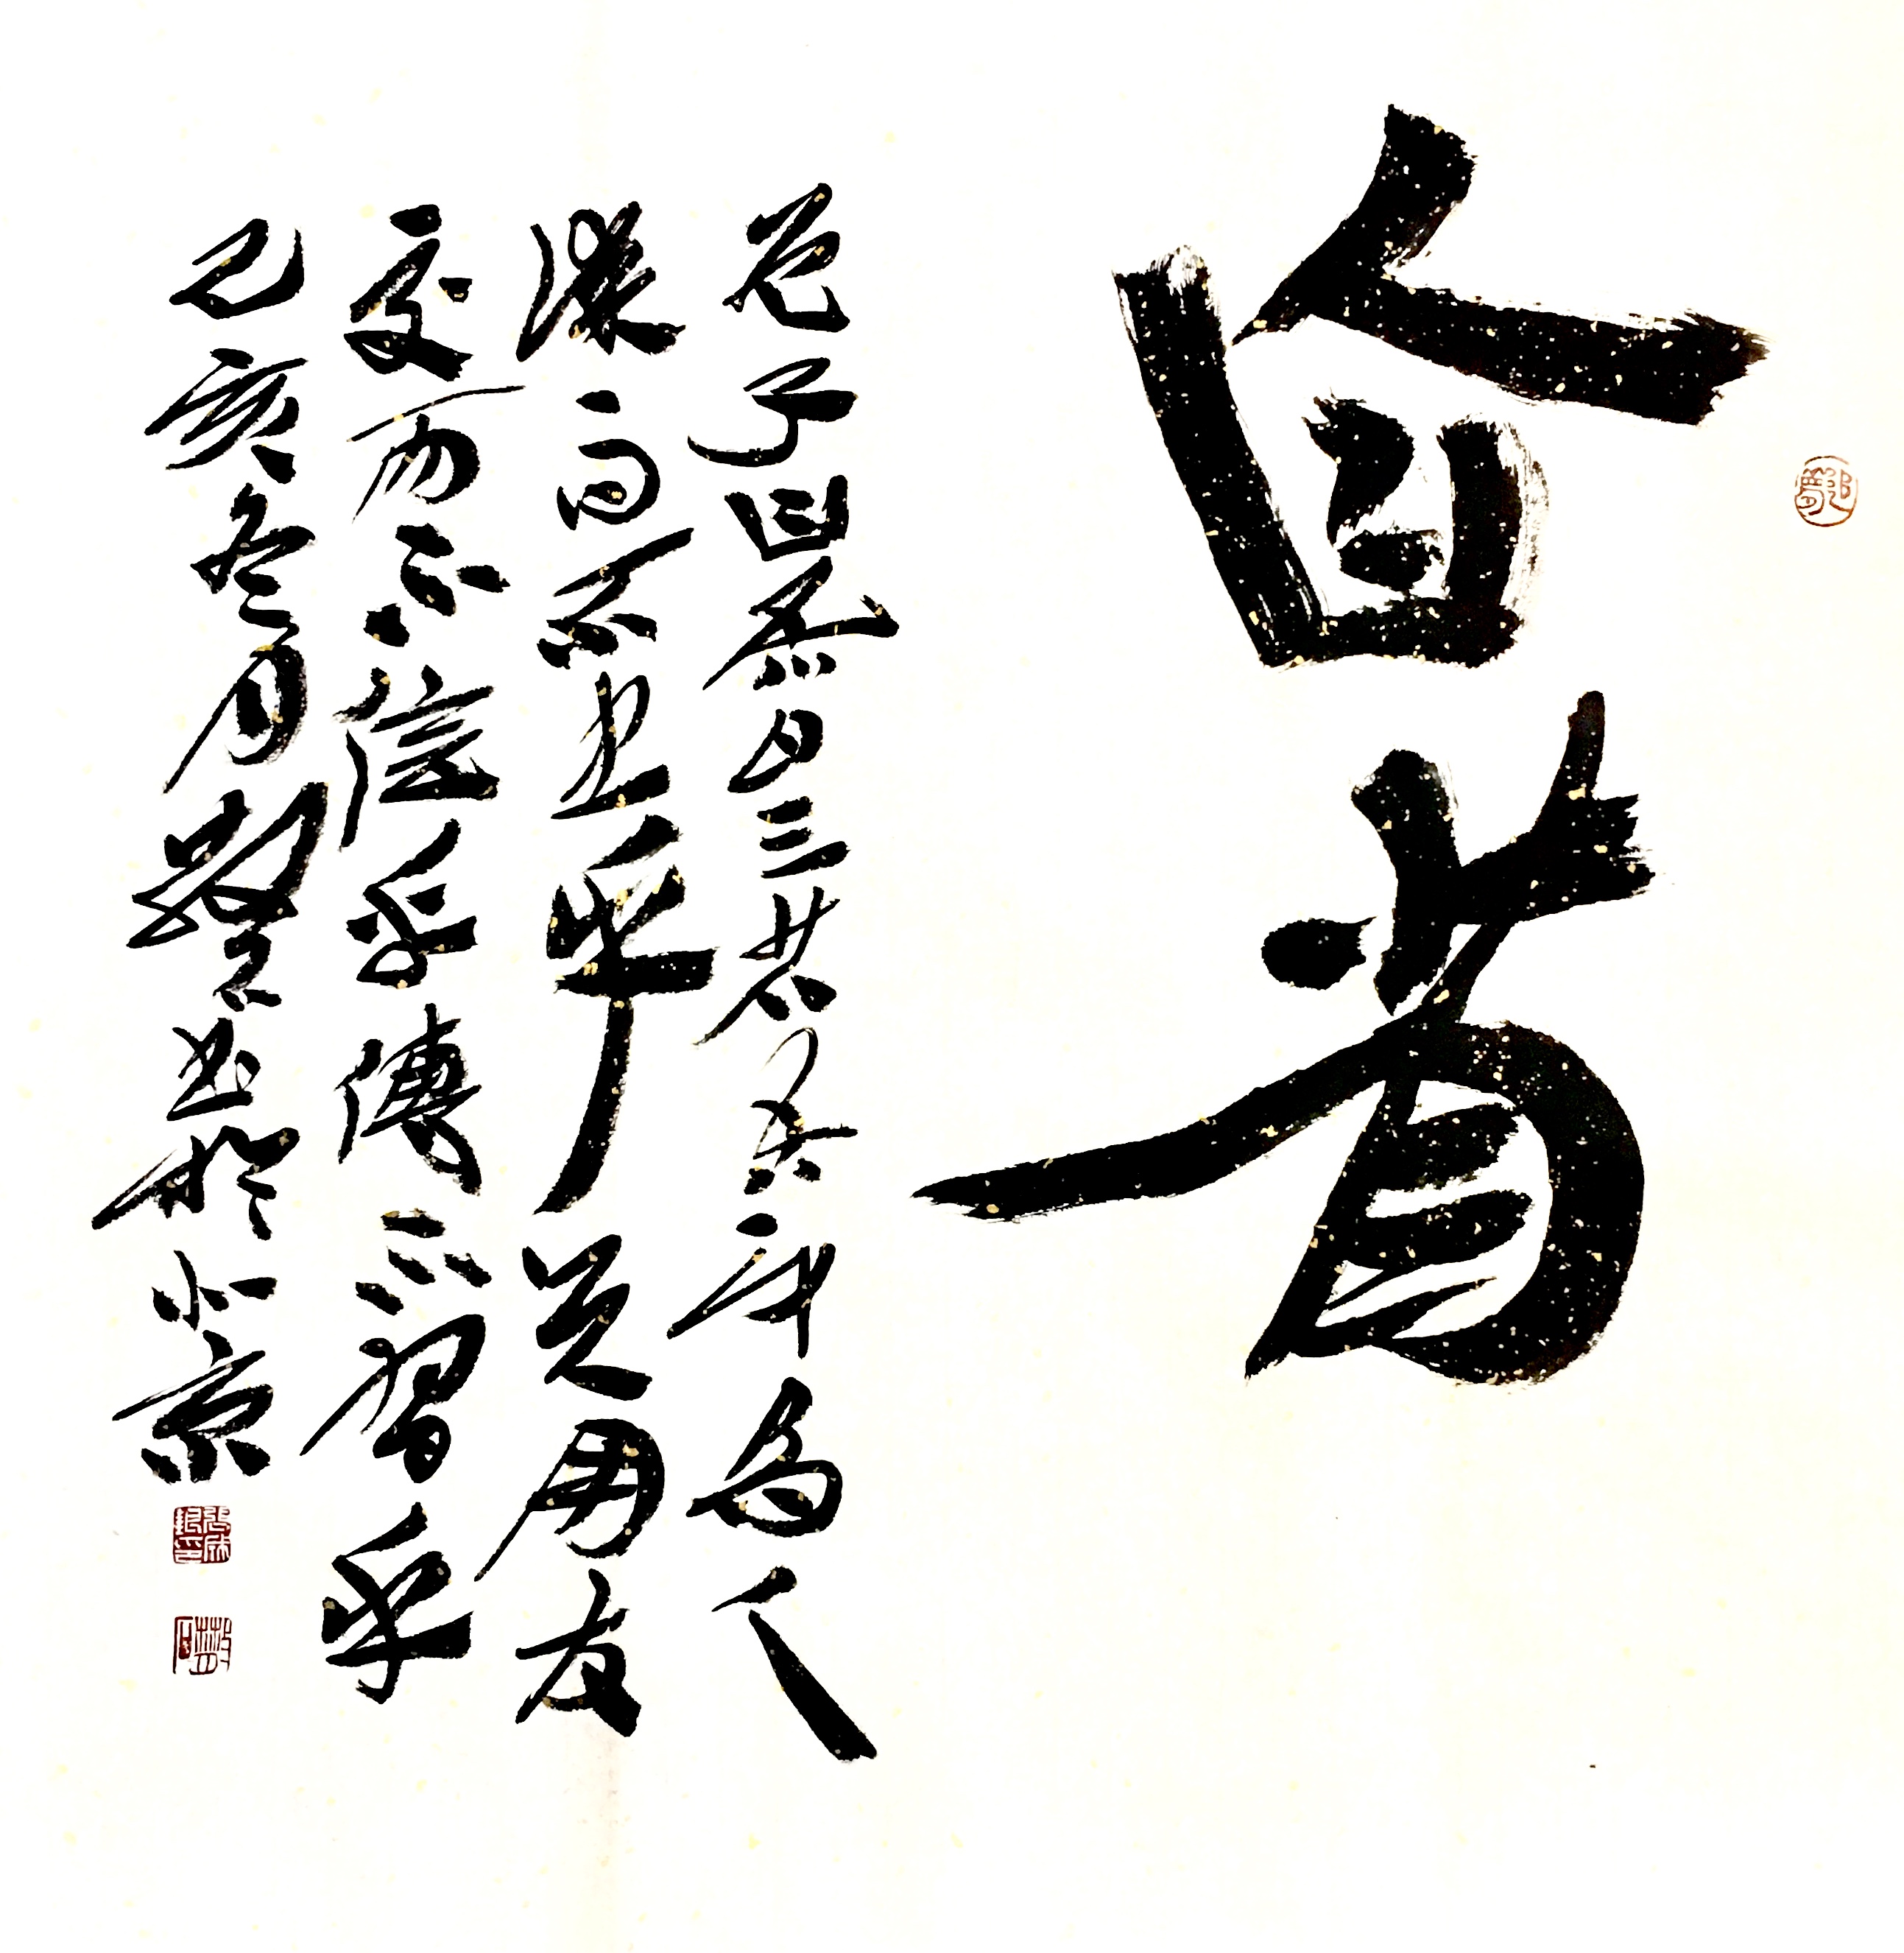 自省
曾子曰吾日三省吾身为人
谋而不忠乎与朋友
交而不信乎传不习乎
己亥冬月敬石书于北京